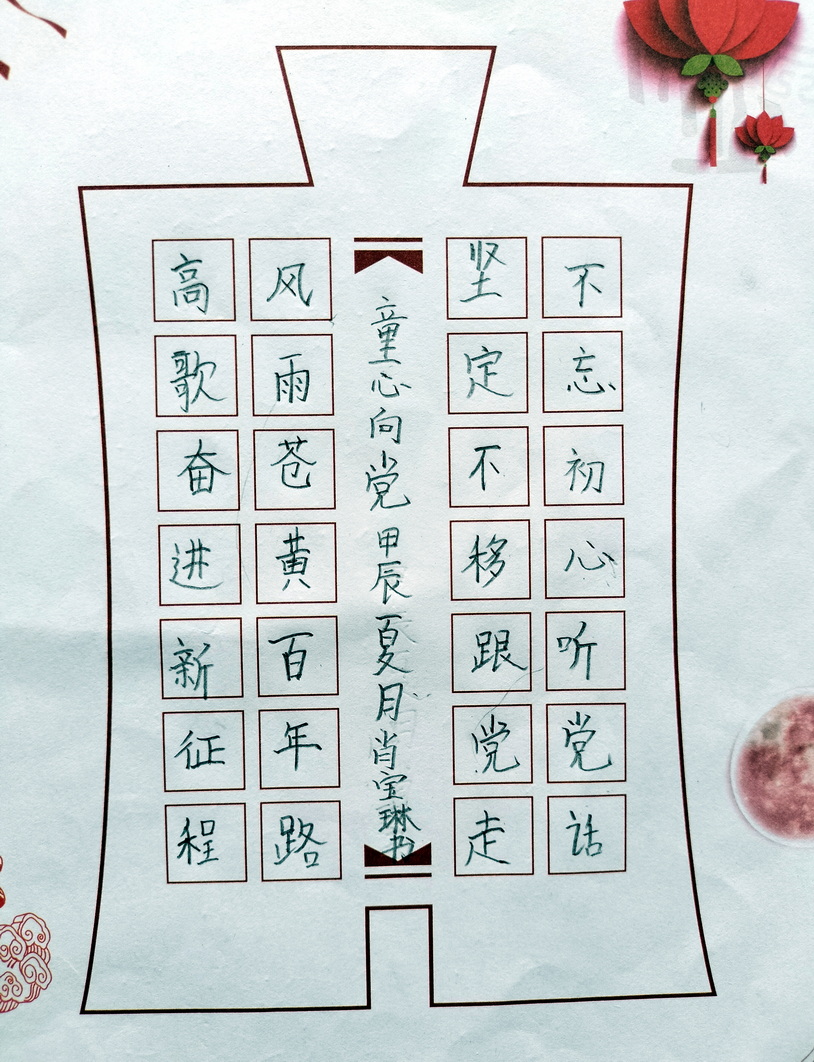 不忘初心听党话
坚定不移跟党走
童心向党 甲辰夏月肖宝琳书
风雨苍黄百年路
高歌奋进新征程